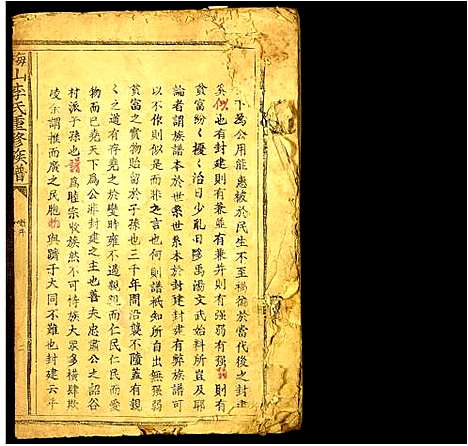 下為公用能惠被於民生不至禍衛於當代後之封建
奚似也有封建則有兼並有兼并則有強弱有強弱則有
貧富紛〻擾〻治日少亂日陟禹湯文武始料所豈及耶
論者謂族譜本於世系世系本於封建封建有弊族譜可
以不作則似是而非之言也何則譜祇知所自出無強弱
貧富之實物貽留於子孫也三千年間沿襲不隨蓋有具
〻之道有存堯之於變時雍不過親親而仁民仁民而愛
物而已堯天下為公非封建之主也善夫忠肅公之詔谷
村派子孫也譜為睦宗收族然不可恃族大眾多橫肆欺
凌余謂推而廣之民胞物與躋于大同不難也封建云乎
梅山李氏重修族譜